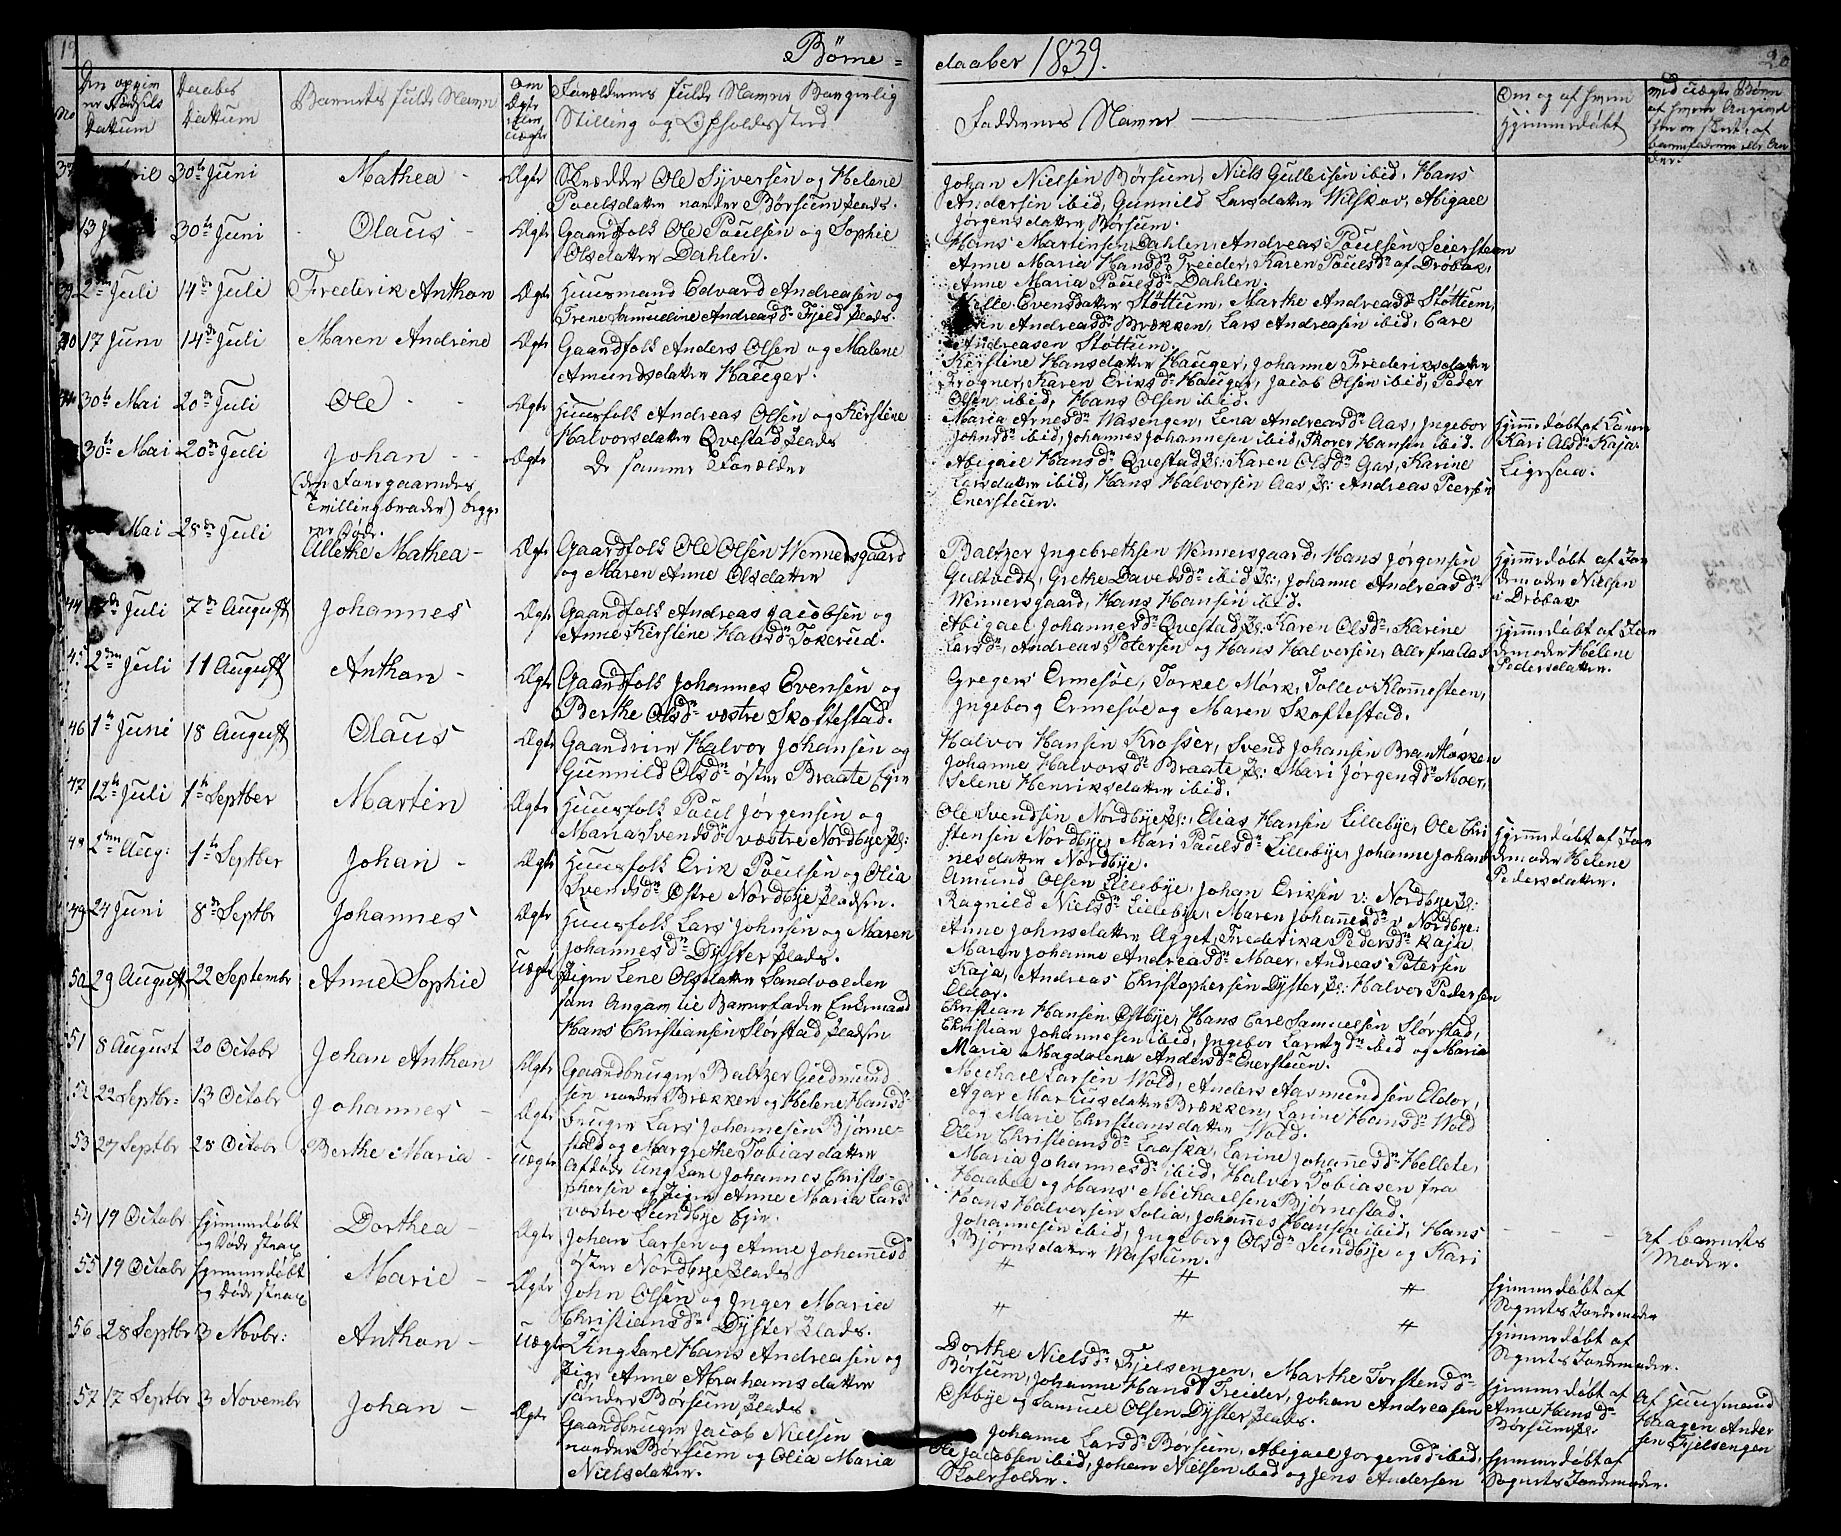 Børne-
daaber 1839.
20
No
Den opgivne Fødsels Dattum
Daabes Dattum
Barnets fulde Navn
Om Ægte eller Uægte
Forældrenes fulde Navne Borgerlig
Stilling og Opholdssted
Faddernes Navne
Om og af hvem Hjemmedøbt
Mathea - Ægte
30te Juni
Skrædder Ole Syversen og Helene
Poulsdatter nordre Børsum Plads.
Johan Nielsen Børsum, Niels Gulleisen ibid, Hans
Andersen ibid, Gunnild Larsdatter Wilskov, Abigael
Jørgensdatter Børsum.
30te Juni
Olaus - Ægte
Gaardfolk Ole Poulsen og Sophie
Olsdatter Dahlen.
Hans Martinsen Dahlen, Andreas Poulsen Seiersteen
Anne Maria Hansdr Treider, Karen Poulsdr af Drøbak,
Anne Maria Poulsdr Dahlen.
39 2den Juli 14de Juli Frederik Anthon Ægte
Huusmand Edvard Andreasen og
Trene Samueline Andreasdr Fjeld Plads.
Evensdatter Støttum, Marthe Andreasdr Støttum,
Andreasdr Brækken, Lars Andreasen ibid, Carl
Andreasen Støttum.
40 17 Juni 14de Juli Maren Andrine Ægte
Gaardfolk Anders Olsen og Malene
Amundsdatter Hauger.
Kerstine Hansdatter Hauger, Johanne Frederiksdatter
Frogner, Karen Eriksdr Hauger, Jacob Olsen ibid, Peder
Olsen ibid, Hans Olsen ibid.
30te Mai 20de Juli Ole - - Ægte
Huusfolk Andreas Olsen og Kerstine
Halvorsdatter Qvestad Plads
Maria Arnesdr Wasengen, Lena Andreasdr Aas, Ingebor
Johnsdr ibid, Johannes Johannesen ibid, Thorer Hansen ibid.
Hjemmedøbt af Karen
Kari Olsdr Kaja
Ligesaa.
30te Mai 20de Juli Johan - - Ægte
(den foregaaendes
Tvillingbroder) begge
ere døde.
De samme Forælder
Abigael Hansdr Qvestad Pl: Karen Olsdr Aas, Karine
Larsdatter ibid, Hans Halvorsen Aas Pl: Andreas Peersen
Enersteen.
Mai 28de Juli Allethe Mathea - Ægte
Gaardfolk Ole Olsen Wennersgaard
og Maren Anne Olsdatter
Baltzer Ingebrethsen Wennersgaard, Hans Jørgensen
Gultvedt, Grethe Davedsdr ibid Pl:, Johanne Andreasdr
Wennersgaard, Hans Hansen ibid.
Hjemmedøbt af Jordemoder Nielsen
i Drøbak
44 Juli 7de August Johannes Ægte
Gaardfolk Andreas Jacobsen og
Anne Kerstine Hansdr Tokerud.
Abigael Johannesdr Qvestad Pl: Karen Olsdr, Karine
Larsdr, Andreas Petersen og Hans Halversen, Alle fra Aas
Hjemmedøbt af Jordemoder Helene
Pedersdatter.
45 2den Juli 11 August Anthon - Ægte
Gaardfolk Johannes Evensen og
Berthe Olsdr vestre Skoftestad.
Gregers Ermesøe, Torkel Mørk, Tollev Klommesteen,
Ingeborg Ermesøe og Maren Skoftestad.
46 1te Juni 18 August Olaus Ægte
Gaardeier Halvor Johansen og
Gunnild Olsdr øster Braate Eier
Halvor Hansen Krosser, Svend Johansen
Johanne Halvorsdr Braate Pl: Mari Jørgensdr Moer,
Selene Henriksdatter ibid.
47 12te Juli 1te Septber Martin Ægte
Huusfolk Poul Jørgensen og
Maria Svendsdr vestre Nordbye Pl:
Ole Svendsen Nordbye Pl:, Elias Hansen Lillebye, Ole Chri
stensen Nordbye, Mari Paulsdr Lillebye, Johanne Johan
nesdatter Nordbye.
Hjemmedøbt af Jor
demoder Helene
Pedersdatter.
48 2den Aug: 1te Septber Johan - Ægte
Huusfolk Erik Poulsen og Olia
Svendsdr Østre Nordbye Pladsen.
Amund Olsen Lillebye, Johan Eriksen v: Nordbye Pl:
Ragnild Nielsdr Lillebye, Maren Johannesdr v Nordbye:
49 24 Juni 8de Septbr Johannes Ægte
Huusfolk Lars Johnsen og Maren
Johannesdr Dyster Plads.
Anne Johnsdatter Agget, Frederika Pedersdr Kaja
Maren Johanne Andreasdr Moer, Andreas Petersen
Kaja, Andreas Christophersen Dyster Pl: Halvor Pedersen
Eldor.
50 29 August 22 Septembr Anne Sophie Uægte
Pigen Lene Olsdatter Sandvolden
som Angav til Barnefader Enkemand
Hans Christiansen Slorstad Pladsen
Christian Hansen Østbye, Hans Carl Samuelsen Slorstad,
Christian Johannesen ibid, Ingebor Larsdr ibid og Maria
Maria Magdalena Andersdr Enersteen.
51 8 August 20 Octobr Johan Anthon Ægte
Gaardbruger Baltzer Gudmund
sen nordre Brækken og Helene Hansdr
Michael Larsen Wold, Anders Aasmundsen Eldor,
Agar Mariusdatter Brækken, Larine Hansdr Wold
og Marie Christiansdatter Wold.
52 22 Septbr: 13 Octobr Johannes - Ægte
bruger Lars Johannesen Bjørne-
stad og Margrethe Tobiasdatter
Olin Christiansdr Laaska, Larine Johannesdr Hellete,
Maria Johannesdr ibid, Halvor Tobiasen fra
Haabel og Hans Michaelsen Bjørnestad.
53 27 Septbr 28 Octobr Berthe Maria - Uægte
Afdøde Ungkarl Johannes Christo-
phersen og Pigen Anne Maria Larsdr
vestre Sundbye Eier.
Hans Halversen Solia, Johannes Hansen ibid, Hans
Johannesen ibid, Ingeborg Olsdr Sundbye og Kari
Bjørnsdatter Massum.
54 19 Octobr Hjemmedøbt og Døde strax Dorthea - Ægte
Johan Larsen og Anne Johannesdr
øster Nordbye Plads
Af barnets
Moder.
55 19 Octobr Hjemmedøbt og Døde strax Marie - Ægte
John Olsen og Inger Maria
Christiansdr Dyster Plads.
Hjemmedøbt af
Sognets Jordemoder
56 28 Septbr 3 Novbr: Anthon - Uægte
Ungkarl Hans Andreasen og
Pige Anne Abrahamsdatter
søndre Børsum Plads.
Dorthe Nielsdr Fjelsengen, Marthe Torstensdr
Børsum, Johanne Hansdr Treider, Johan Andreasen
Østbye og Samuel Olsen Dyster Plads.
Hjemmedøbt af
Sognets Jordemoder.
Hjemmedøbt af
Anne Hansdr
Børsum Pl:
Af Huusmand
Haagen Ander
sen Fjelsengen
57 17 Septbr 3 Novembr Johan - Ægte
Gaardbruger Jacob Nielsen
nordre Børsum og Olia Maria
Nielsdatter.
Johanne Larsdr Børsum, Abigael Jørgensdr ibid,
Ole Jacobsen ibid, Johan Nielsen ibid og Jens Andersen
Skoleholder.
Hjemmedøbt af
Sognets Jordemoder.